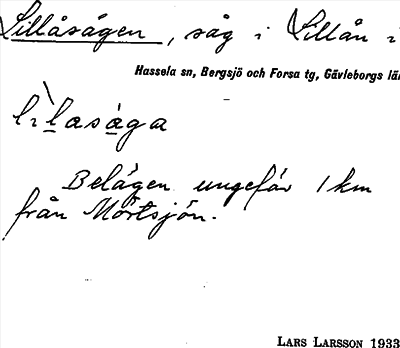 Lillåsågen, såg i Lillån i
Hassela sn, Bergsjö och Forsa tg, Gävleborgs lä
Belägen ungefär 1 km
från Mörtsjön.
LARS LARSSON 1933